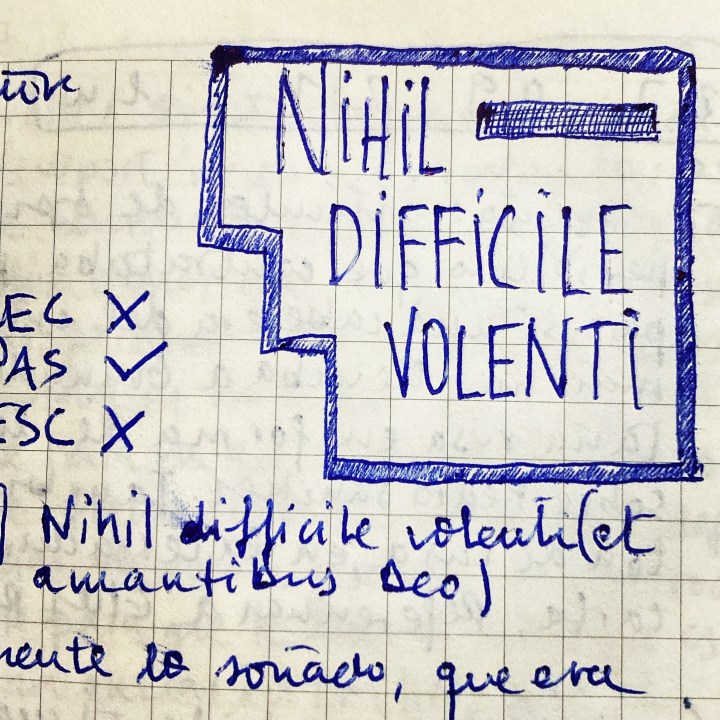 NiHiL
DiFFiCiLE
VOLENTi
EC X
PAS ✓
ESC X
) Nihil difficile volenti (et
amantibus Deo)
mente lo soñado, que era